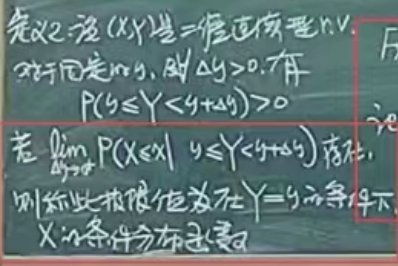 定义2:设(X,Y)是二维连续型r.v.
对于固定的y,∀Δy>0,有
P(y≤Y<y+Δy)>0
若 lim P(X≤x| y≤Y<y+Δy) 存在,
则称此极限值为在Y=y的条件下
X的条件分布函数